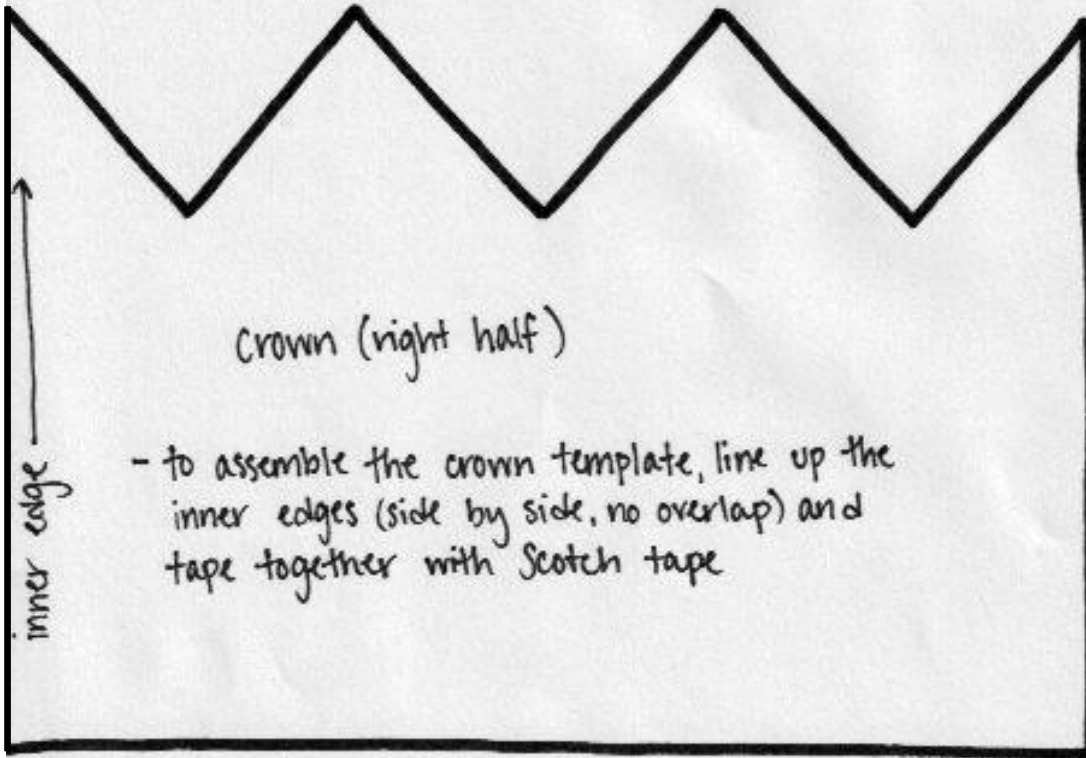 crown (right half)
- to assemble the crown template, line up the
inner edges (side by side, no overlap) and
tape together with Scotch tape
inner edge